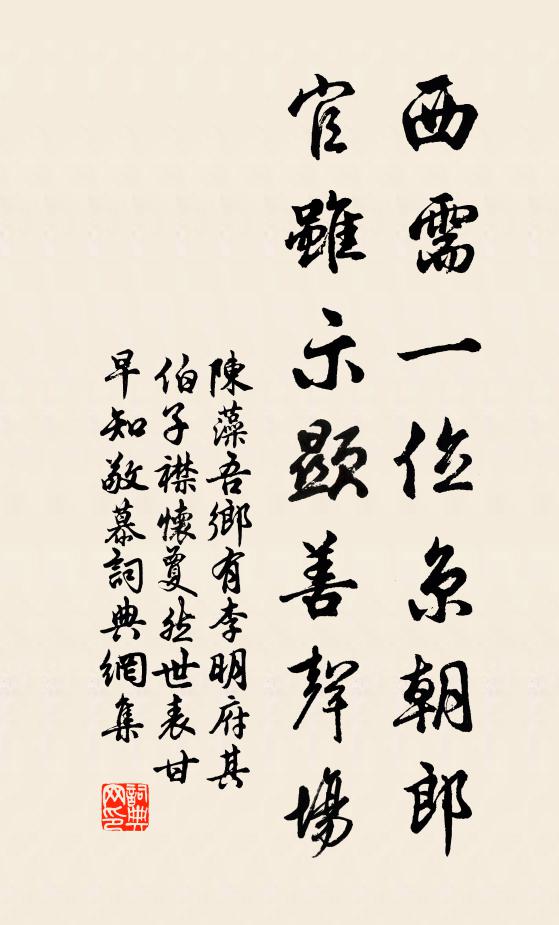 西需一位京朝郎
官雖示顯善聲場
陳藻吾鄉有李明府其
伯子襟懷夐然世表甘
早知敬慕詞典網集
詞典
网印